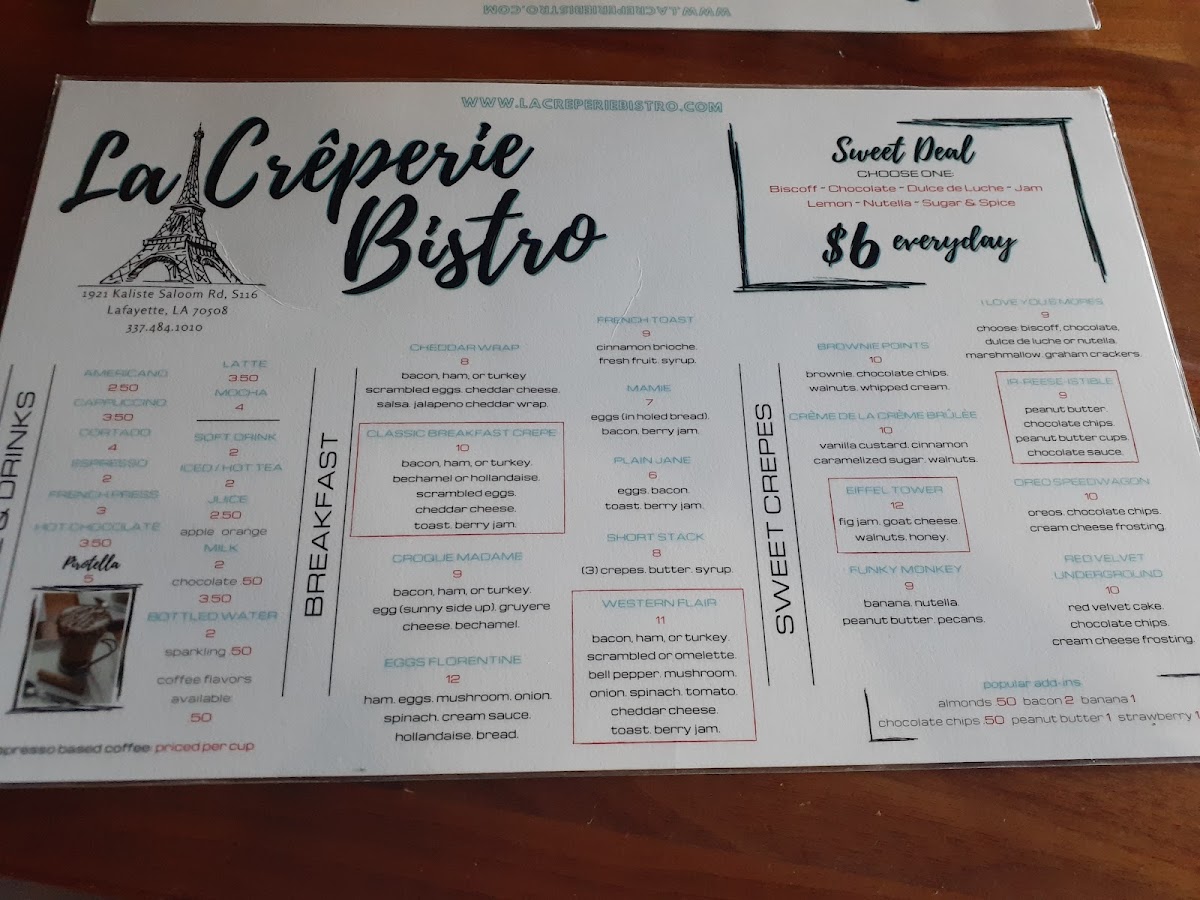 WWW.LACREPERIEBISTRO.COM
WWW.LACREPERIEBISTRO.COM
La Crêperie
Bistro
1921 Kaliste Saloom Rd, S116
Lafayette, LA 70508
337.484.1010
Sweet Deal
CHOOSE ONE:
Biscoff - Chocolate - Dulce de Luche - Jam
Lemon - Nutella - Sugar & Spice
$6 everyday
& DRINKS
AMERICANO
2.50
CAPPUCCINO
3.50
CORTADO
4
ESPRESSO
2
FRENCH PRESS
3
HOT CHOCOLATE
3.50
Pirotella
5
LATTE
3.50
MOCHA
4
SOFT DRINK
2
ICED / HOT TEA
2
JUICE
2.50
apple orange
MILK
2
chocolate .50
3.50
BOTTLED WATER
2
sparkling .50
coffee flavors
available:
.50
based coffee: priced per cup
BREAKFAST
CHEDDAR WRAP
8
bacon, ham, or turkey
scrambled eggs. cheddar cheese.
salsa. jalapeno cheddar wrap.
CLASSIC BREAKFAST CREPE
10
bacon, ham, or turkey.
bechamel or hollandaise.
scrambled eggs.
cheddar cheese.
toast. berry jam.
CROQUE MADAME
9
bacon, ham, or turkey.
egg (sunny side up). gruyere
cheese. bechamel.
EGGS FLORENTINE
12
ham. eggs. mushroom. onion.
spinach. cream sauce.
hollandaise. bread.
FRENCH TOAST
9
cinnamon brioche.
fresh fruit. syrup.
MAMIE
7
eggs (in holed bread).
bacon. berry jam.
PLAIN JANE
6
eggs. bacon.
toast. berry jam.
SHORT STACK
8
(3) crepes. butter. syrup.
WESTERN FLAIR
11
bacon, ham, or turkey.
scrambled or omelette.
bell pepper. mushroom.
onion. spinach. tomato.
cheddar cheese.
toast. berry jam.
SWEET CREPES
BROWNIE POINTS
10
brownie. chocolate chips.
walnuts. whipped cream.
CRÈME DE LA CRÈME BRÛLÉE
10
vanilla custard. cinnamon
caramelized sugar. walnuts.
EIFFEL TOWER
12
fig jam. goat cheese.
walnuts. honey.
FUNKY MONKEY
9
banana. nutella.
peanut butter. pecans.
I LOVE YOU S'MORES
9
choose: biscoff, chocolate,
dulce de luche or nutella.
marshmallow. graham crackers.
IR-REESE-ISTIBLE
9
peanut butter.
chocolate chips.
peanut butter cups.
chocolate sauce.
OREO SPEEDWAGON
10
oreos. chocolate chips.
cream cheese frosting.
RED VELVET
UNDERGROUND
10
red velvet cake.
chocolate chips.
cream cheese frosting.
popular add-ins:
almonds .50 bacon 2 banana 1
chocolate chips .50 peanut butter 1 strawberry 1